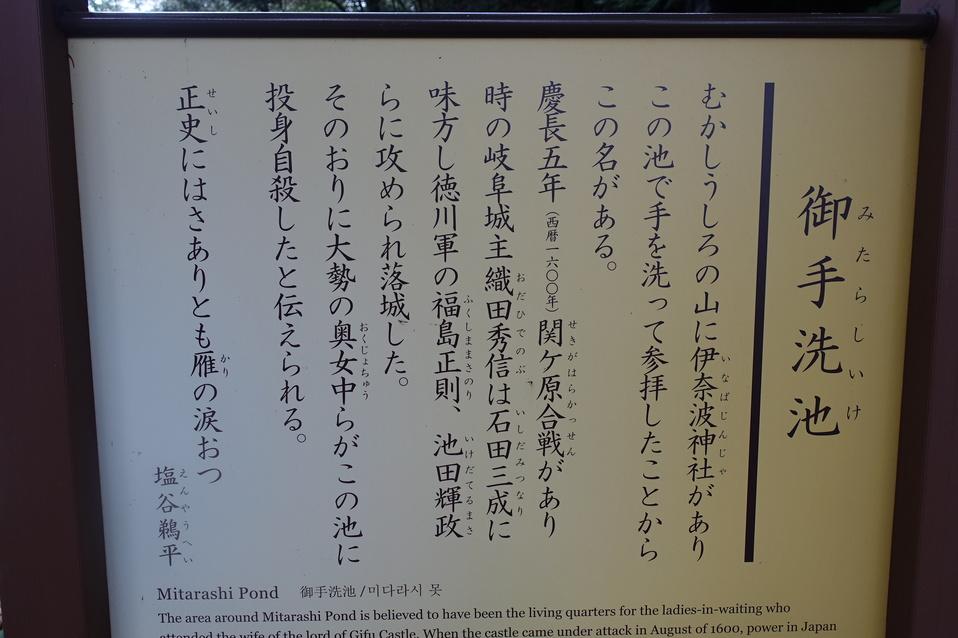 御手洗池
みたらしいけ
むかしうしろの山に伊奈波神社があり
いなばじんじゃ
この池で手を洗って参拝したことから
この名がある。
慶長五年(西暦一六〇〇年)関ケ原合戦があり
せきがはらかっせん
時の岐阜城主織田秀信は石田三成に
おだひでのぶ
いしだみつなり
味方し徳川軍の福島正則、池田輝政
ふくしままさのり
いけだてるまさ
らに攻められ落城した。
そのおりに大勢の奥女中らがこの池に
おくじょちゅう
投身自殺したと伝えられる。
正史にはさありとも雁の涙おつ
せいし
かり
塩谷鵜平
えんやうへい
Mitarashi Pond 御手洗池 / 미다라시 못
The area around Mitarashi Pond is believed to have been the living quarters for the ladies-in-waiting who
attended the wife of the lord of Gifu Castle. When the castle came under attack in August of 1600, power in Japan